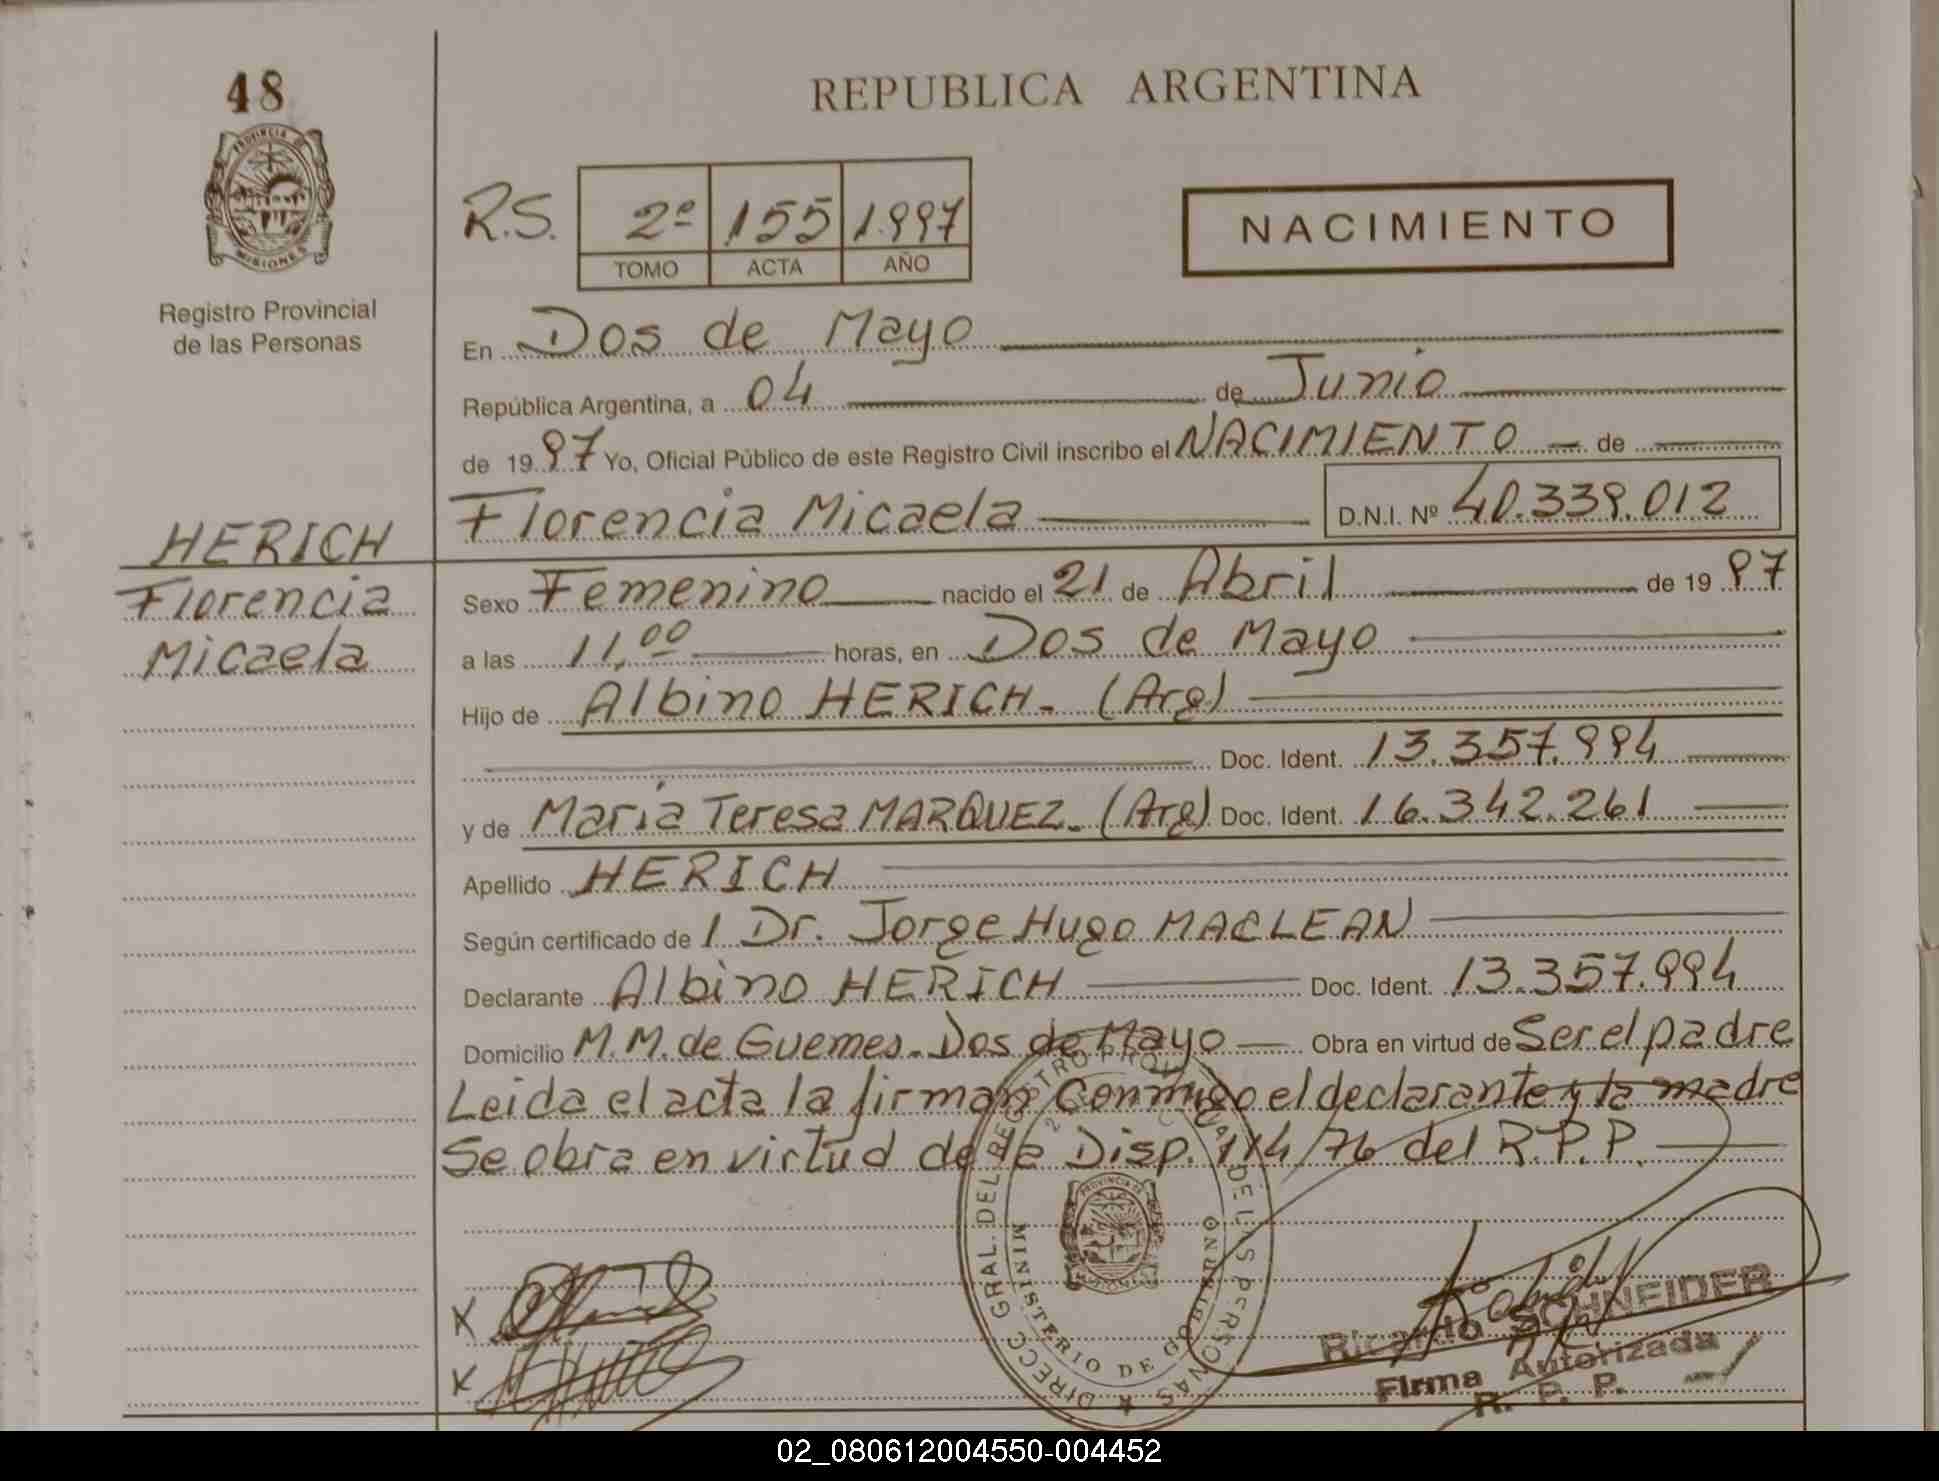 48
REPUBLICA ARGENTINA
PROVINCIA DE
MISIONES
Registro Provincial
de las Personas
R.S.
2º 155 1.997
TOMO ACTA AÑO
NACIMIENTO
En Dos de Mayo
República Argentina, a 04 de Junio
de 1997 Yo, Oficial Público de este Registro Civil inscribo el NACIMIENTO de
Florencia Micaela D.N.I. Nº 40.339.012
HERICH
Florencia
Micaela
Sexo Femenino nacido el 21 de Abril de 1997
a las 11,00 horas, en Dos de Mayo
Hijo de Albino HERICH. (Arg)
Doc. Ident. 13.357.994
y de María Teresa MARQUEZ. (Arg) Doc. Ident. 16.342.261
Apellido HERICH
Según certificado de 1 Dr. Jorge Hugo MACLEAN
Declarante Albino HERICH Doc. Ident. 13.357.994
Domicilio M.M. de Guemes. Dos de Mayo Obra en virtud de Ser el padre
Leida el acta la firman conmigo el declarante y la madre
Se obra en virtud de la Disp. 114/76 del R.P.P.
DIRECC GRAL. DEL REGISTRO DE LAS PERSONAS
MINISTERIO DE GOBIERNO
PROVINCIA DE
X
X
Ricardo SCHNEIDER
Firma Autorizada
R. P. P.
02_080612004550-004452